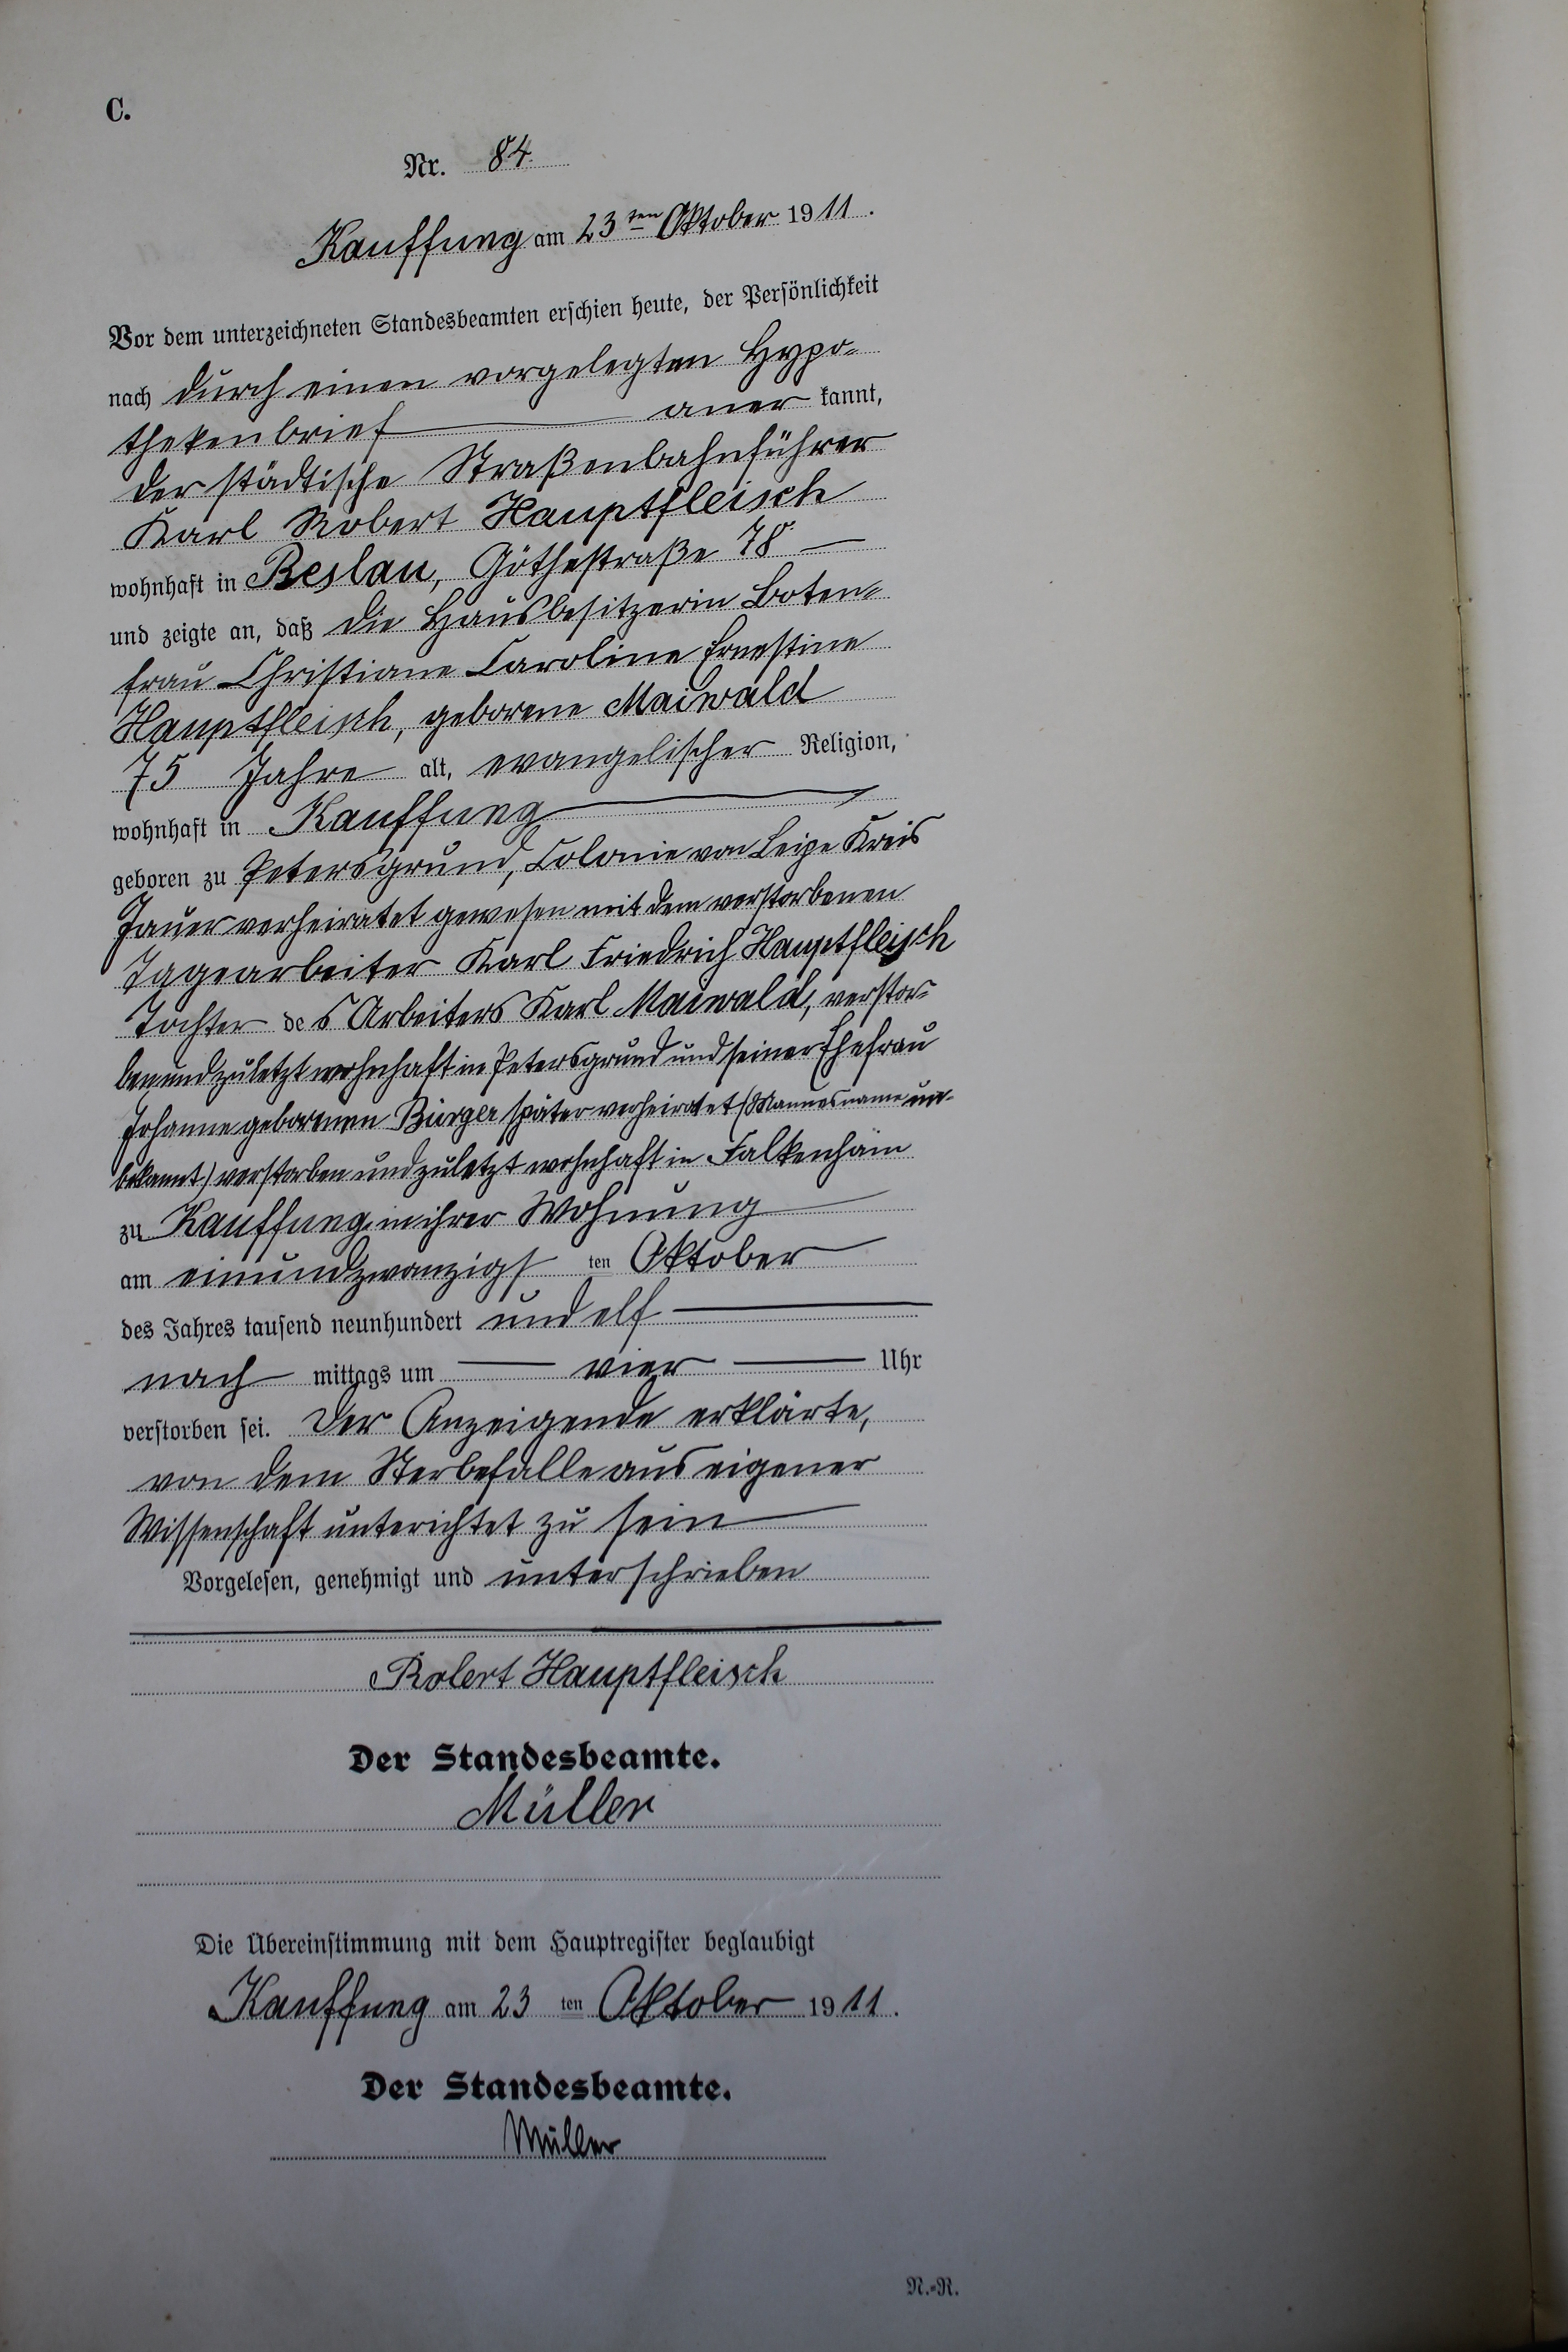 C.
Nr. 84.
Kauffung am 23ten Oktober 1911.
Vor dem unterzeichneten Standesbeamten erschien heute, der Persönlichkeit
nach durch einen vorgelegten Hypo-
thekenbrief anerkannt,
der städtische Straßenbahnführer
Karl Robert Hauptfleisch
wohnhaft in Beslau, Göthestraße 78
und zeigte an, daß die Hausbesitzerin Boten-
frau Christiane Caroline Ernestine
Hauptfleisch, geborene Maiwald
75 Jahre alt, evangelischer Religion,
wohnhaft in Kauffung
geboren zu Petersgrund, Colonie von Leipe Kreis
Jauer verheiratet gewesen mit dem verstorbenen
Tagearbeiter Karl Friedrich Hauptfleisch
Tochter des Arbeiters Karl Maiwald, verstor-
ben und zuletzt wohnhaft in Petersgrund und seiner Ehefrau
Johanne geborenen Bürger später verheiratet (Mannesname un-
bekannt) verstorben und zuletzt wohnhaft in Falkenhain
zu Kauffung, in ihrer Wohnung
am einundzwanzigsten Oktober
des Jahres tausend neunhundert und elf
nach mittags um vier Uhr
verstorben sei. Der Anzeigende erklärte,
von dem Sterbefalle aus eigener
Wissenschaft unterichtet zu sein
Vorgelesen, genehmigt und unterschrieben
Robert Hauptfleisch
Der Standesbeamte.
Müller
Die Übereinstimmung mit dem Hauptregister beglaubigt
Kauffung am 23 ten Oktober 1911.
Der Standesbeamte.
Müller
N.-R.